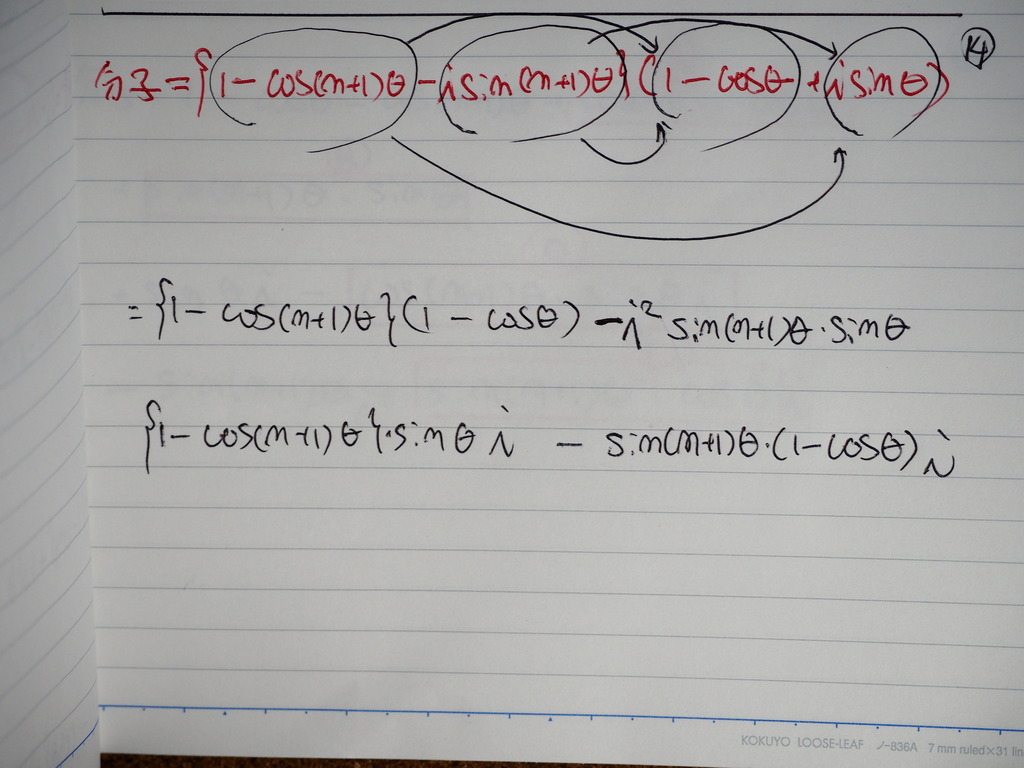 ⑭
分子={1-cos(n+1)θ-isin(n+1)θ}(1-cosθ+isinθ)
={1-cos(n+1)θ}(1-cosθ)-i²sin(n+1)θ·sinθ
{1-cos(n+1)θ}·sinθi-sin(n+1)θ·(1-cosθ)i
KOKUYO LOOSE-LEAF ノ-836A 7 mm ruled×31 lin